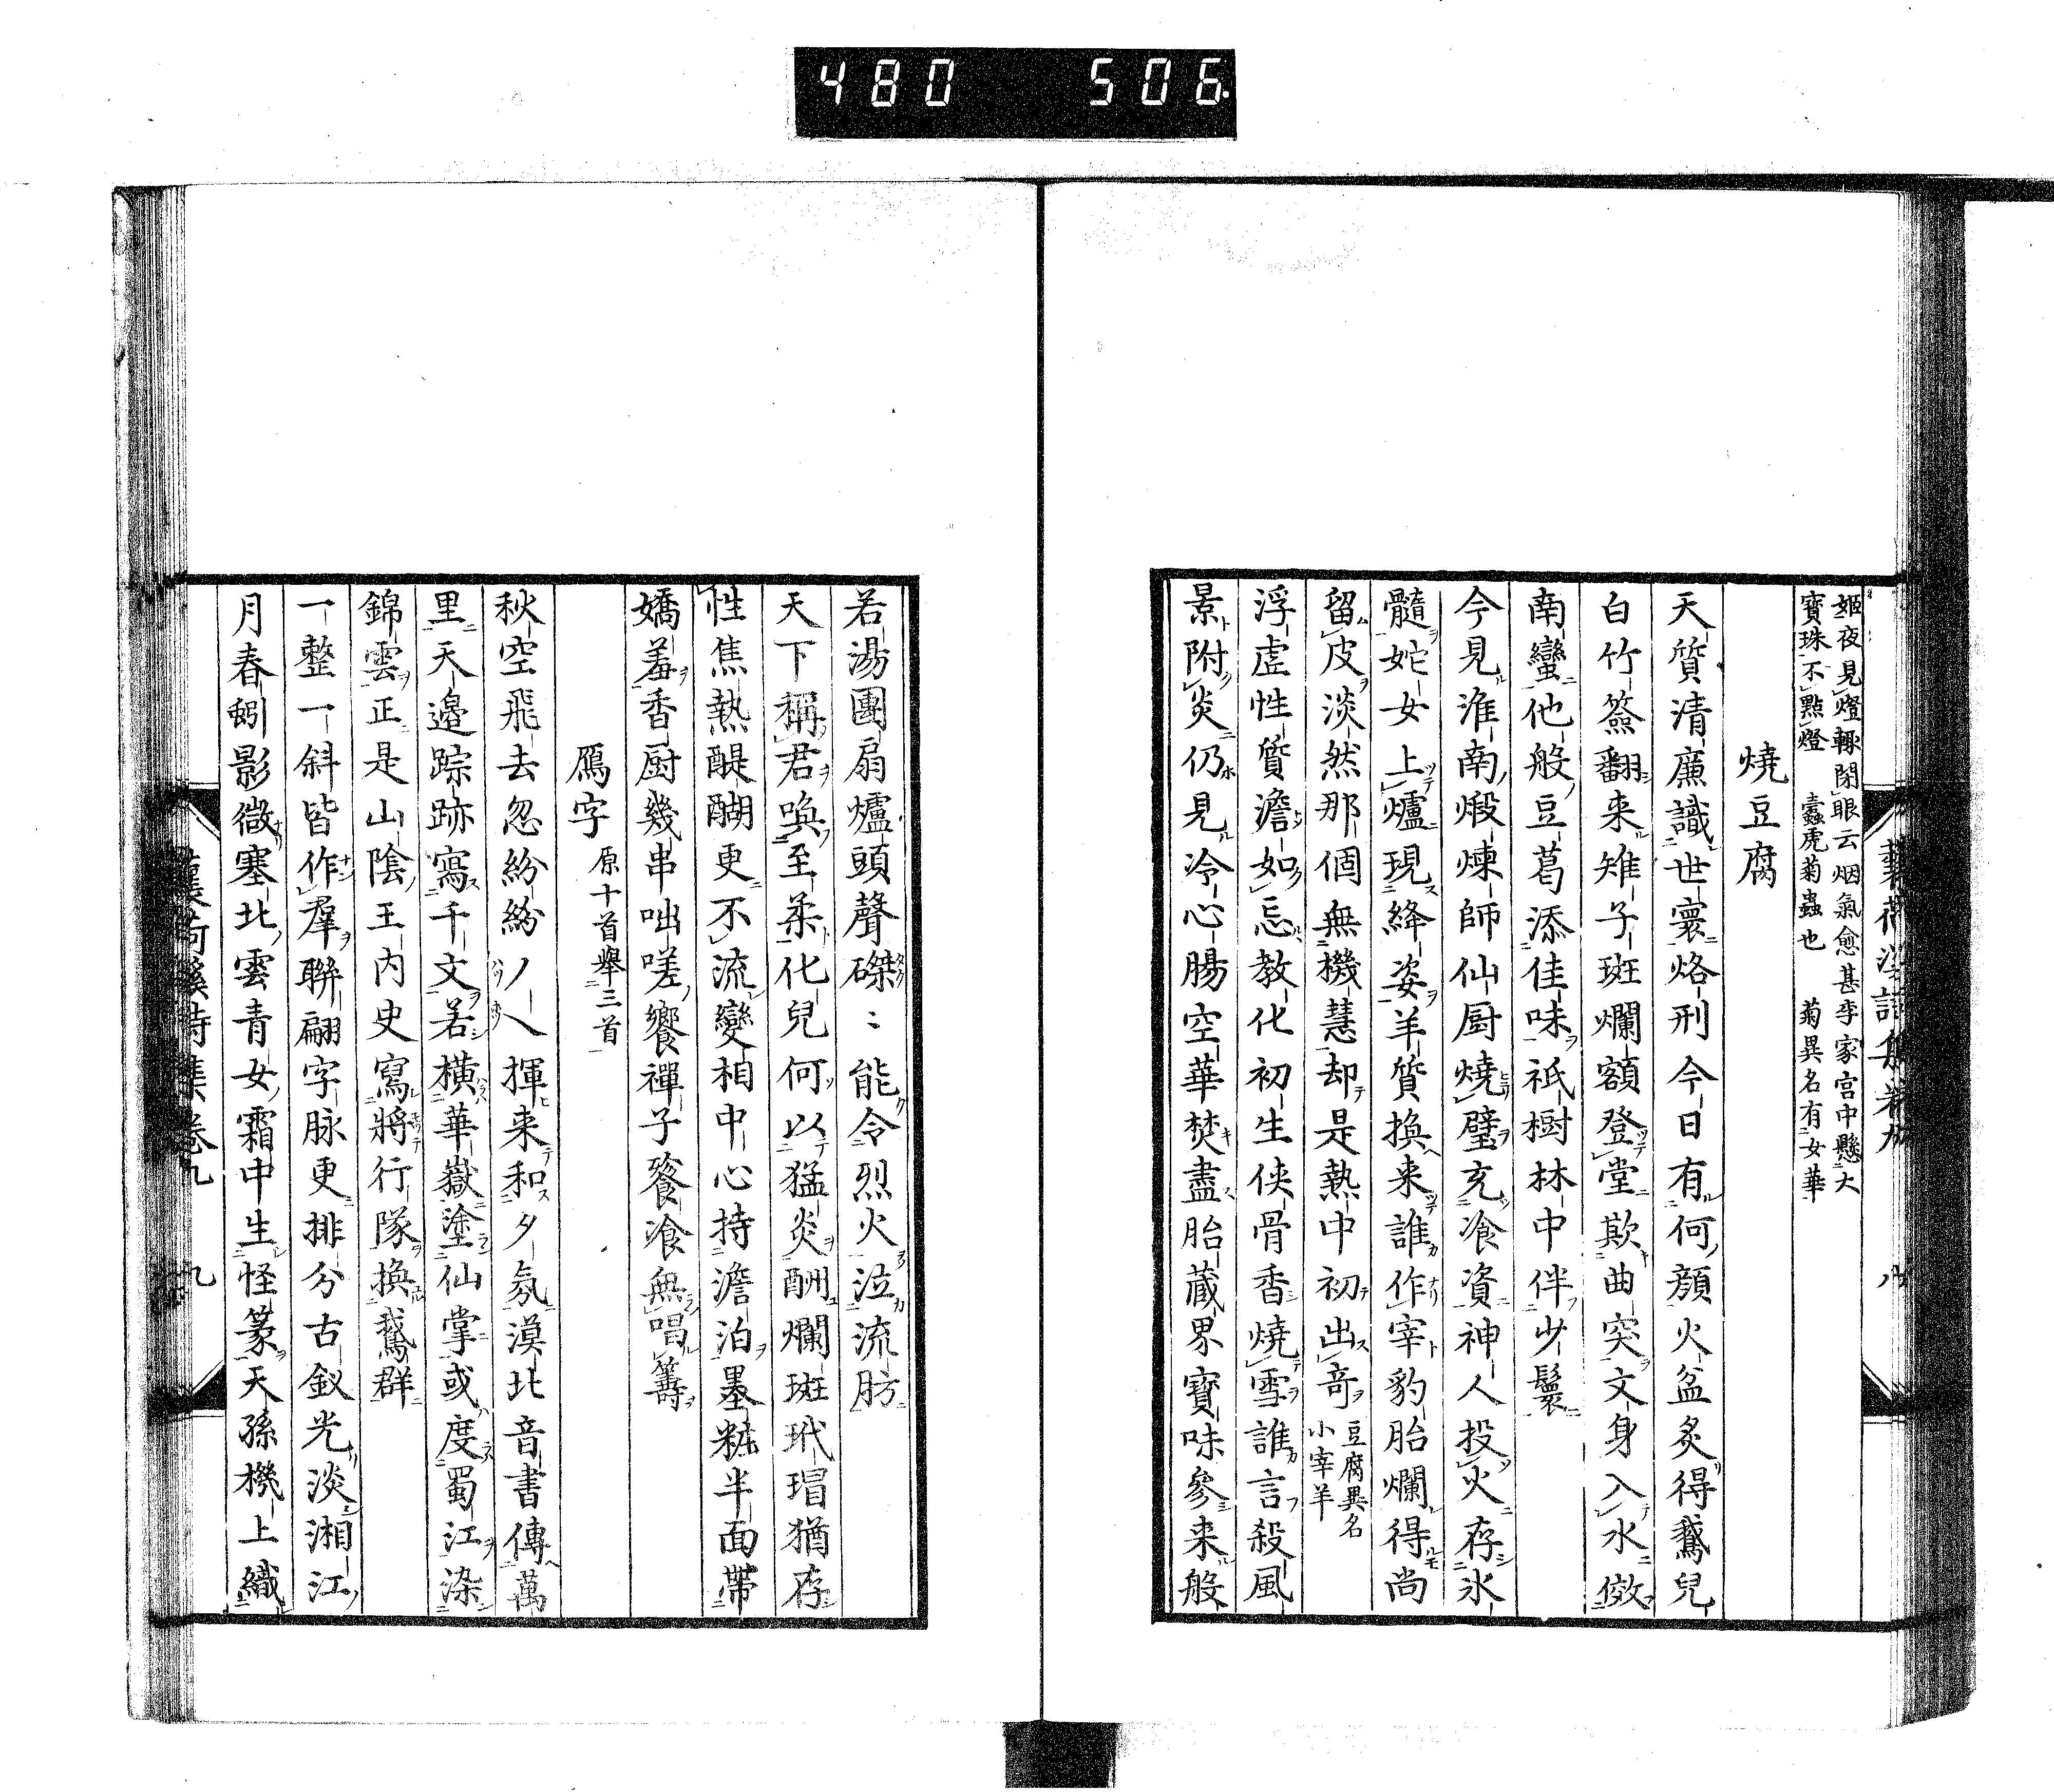 480 506
姬夜見燈輙閉眼云烟氣愈甚李家宮中懸大
寶珠不點燈 蠹虎菊蟲也 菊異名有女華
燒豆腐
天質清廉識世寰烙刑今日有何顔火盆炙得鵞兒
白竹簽翻来雉子斑爛額登堂欺曲突文身入水傚
南蠻他般豆葛添佳味祇樹林中伴少鬟
今見淮南煅煉師仙厨燒璧充飡資神人投火存氷
髓姹女上爐現絳姿羊質換来誰作宰豹胎爛得尚
留皮淡然那個無機慧却是熱中初出奇 豆腐異名
小宰羊
浮虚性質澹如忘教化初生俠骨香燒雪誰言殺風
景附炎仍見冷心腸空華焚盡胎蔵界寶味參来般
若湯團扇爐頭聲磔〻能令烈火泣流肪
天下稱君喚至柔化兒何以猛炎酬爛斑玳瑁猶存
性焦熱醍醐更不流變相中心持澹泊墨粧半面帶
嬌羞香厨幾串咄嗟饗禪子飱飡無唱籌
鴈字 原十首舉三首
秋空飛去忽紛紛丿乀揮来和夕氛漠北音書傳萬
里天邉踪跡寫千文若横華嶽塗仙掌或度蜀江染
錦雲正是山陰王内史寫將行隊換鵞群
一整一斜皆作羣聯翩字脉更排分古釵光淡湘江
月春蚓影微塞北雲青女霜中生怪篆天孫機上織
蘘荷溪詩集卷九 九